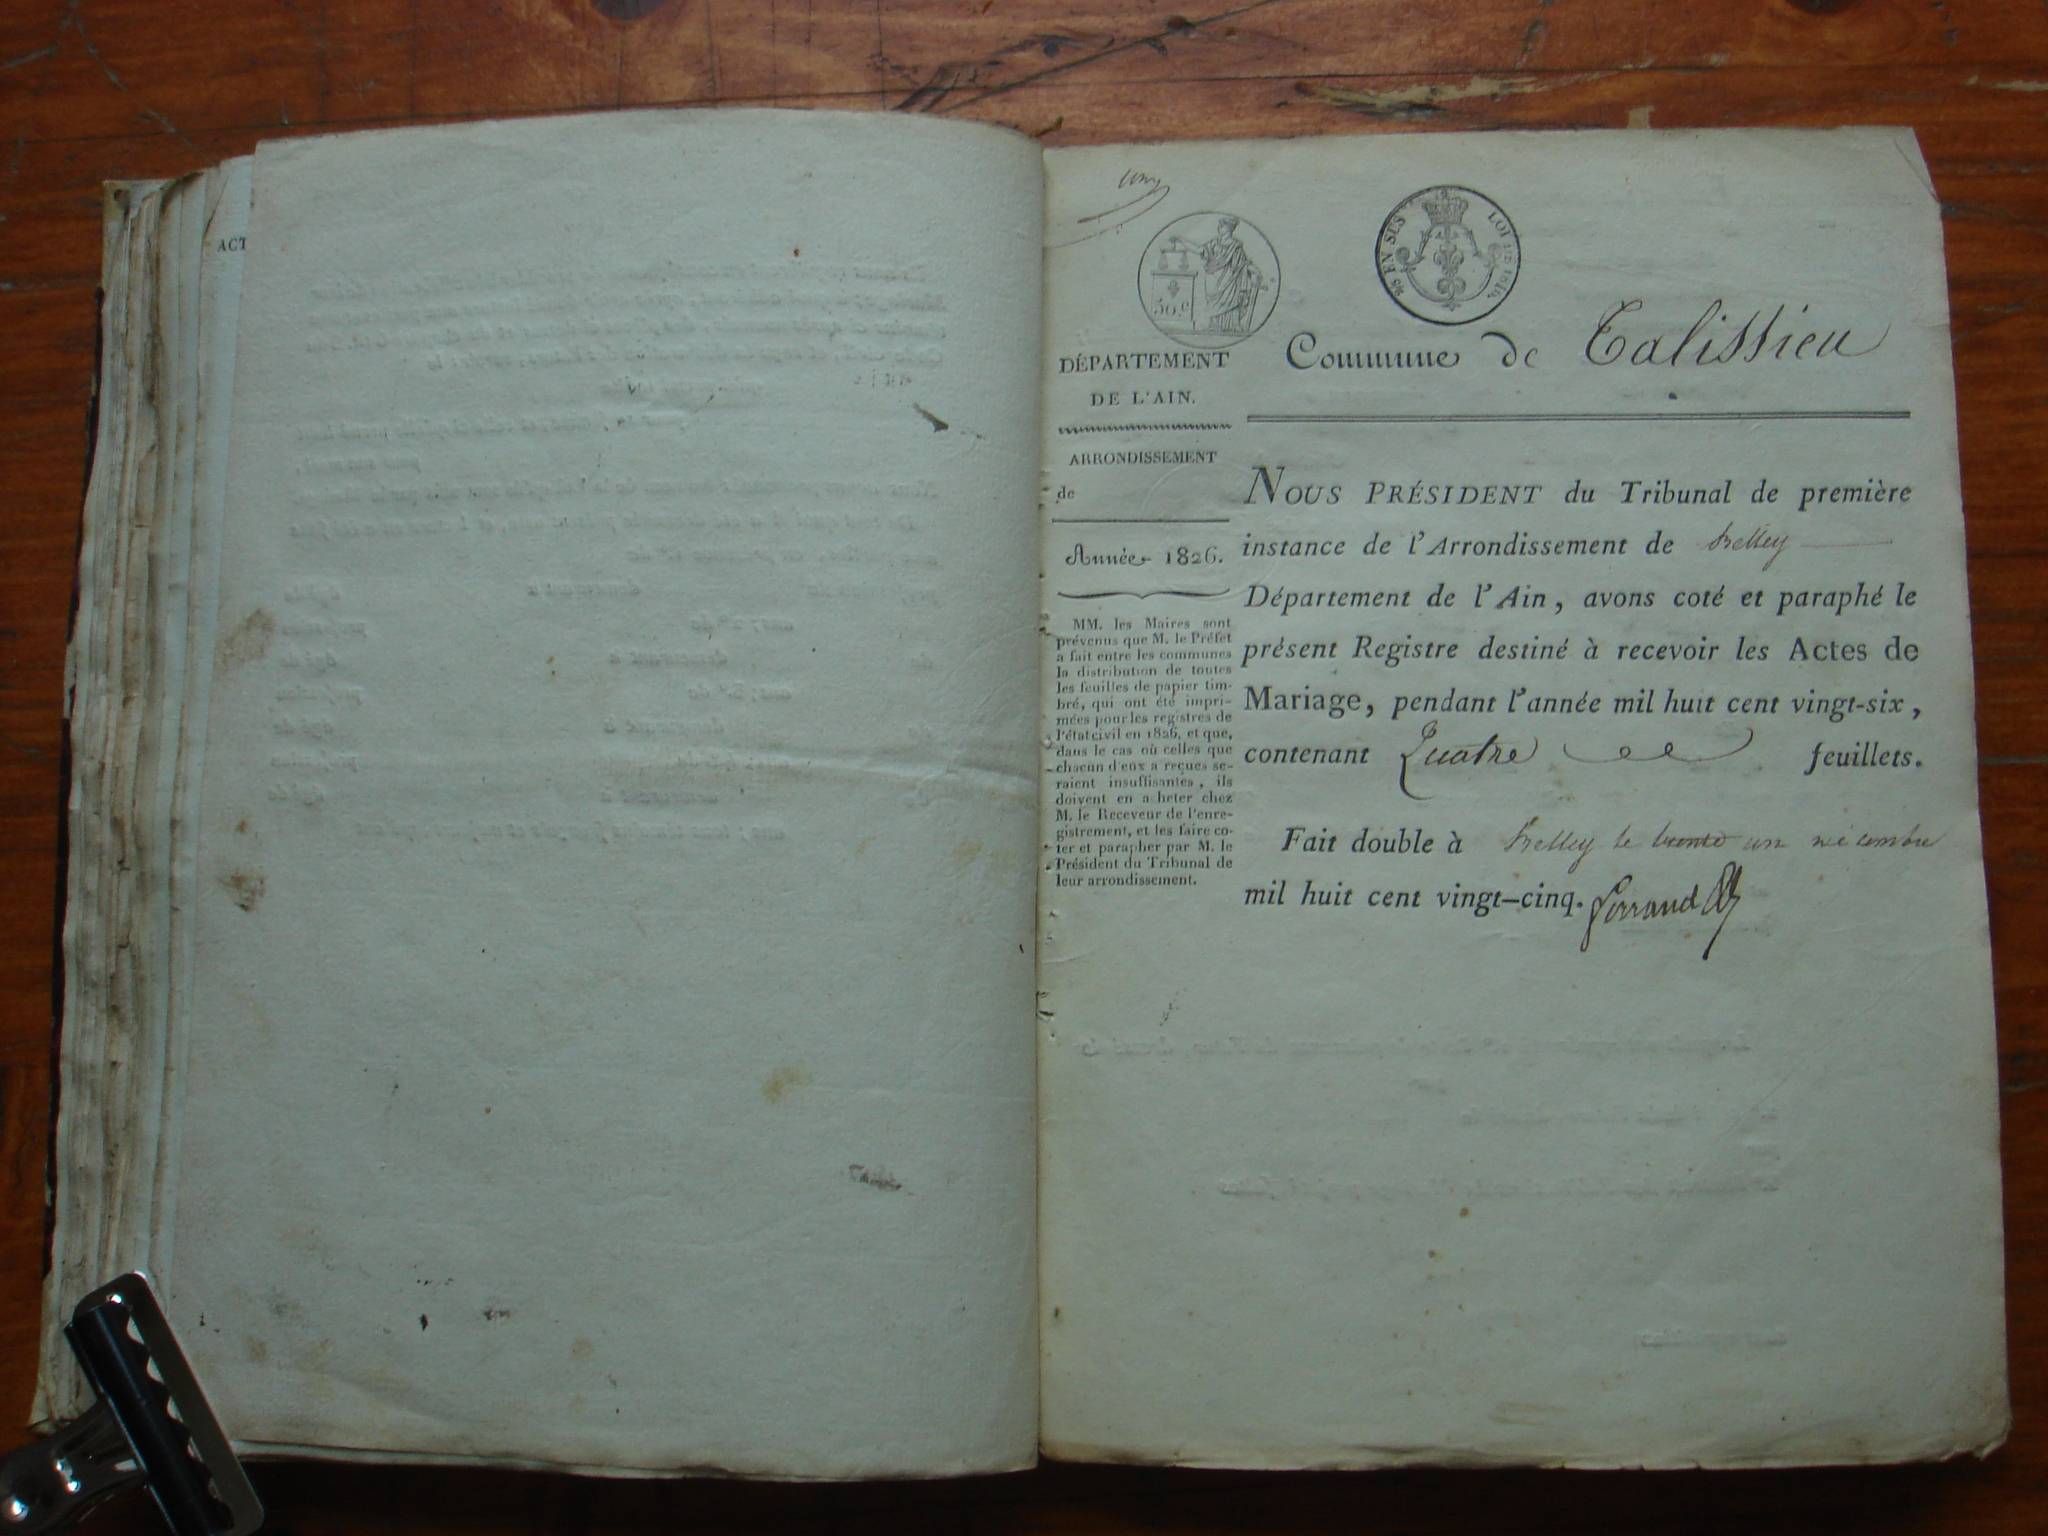 ACT
50.c
25 EN SUS LOI DE 1816.
Commune de Talissieu
DÉPARTEMENT
DE L'AIN.
ARRONDISSEMENT
de
Année 1826.
MM. les Maires sont
prévenus que M. le Préfet
a fait entre les communes
la distribution de toutes
les feuilles de papier tim-
bré, qui ont été impri-
mées pour les registres de
l'état civil en 1826, et que,
dans le cas où celles que
chacun d'eux a reçues se-
raient insuffisantes, ils
doivent en acheter chez
M. le Receveur de l'enre-
gistrement, et les faire co-
ter et parapher par M. le
Président du Tribunal de
leur arrondissement.
NOUS PRÉSIDENT du Tribunal de première
instance de l'Arrondissement de Belley
Département de l'Ain, avons coté et paraphé le
présent Registre destiné à recevoir les Actes de
Mariage, pendant l'année mil huit cent vingt-six,
contenant Quatre feuillets.
Fait double à Belley le trente un décembre
mil huit cent vingt-cinq.